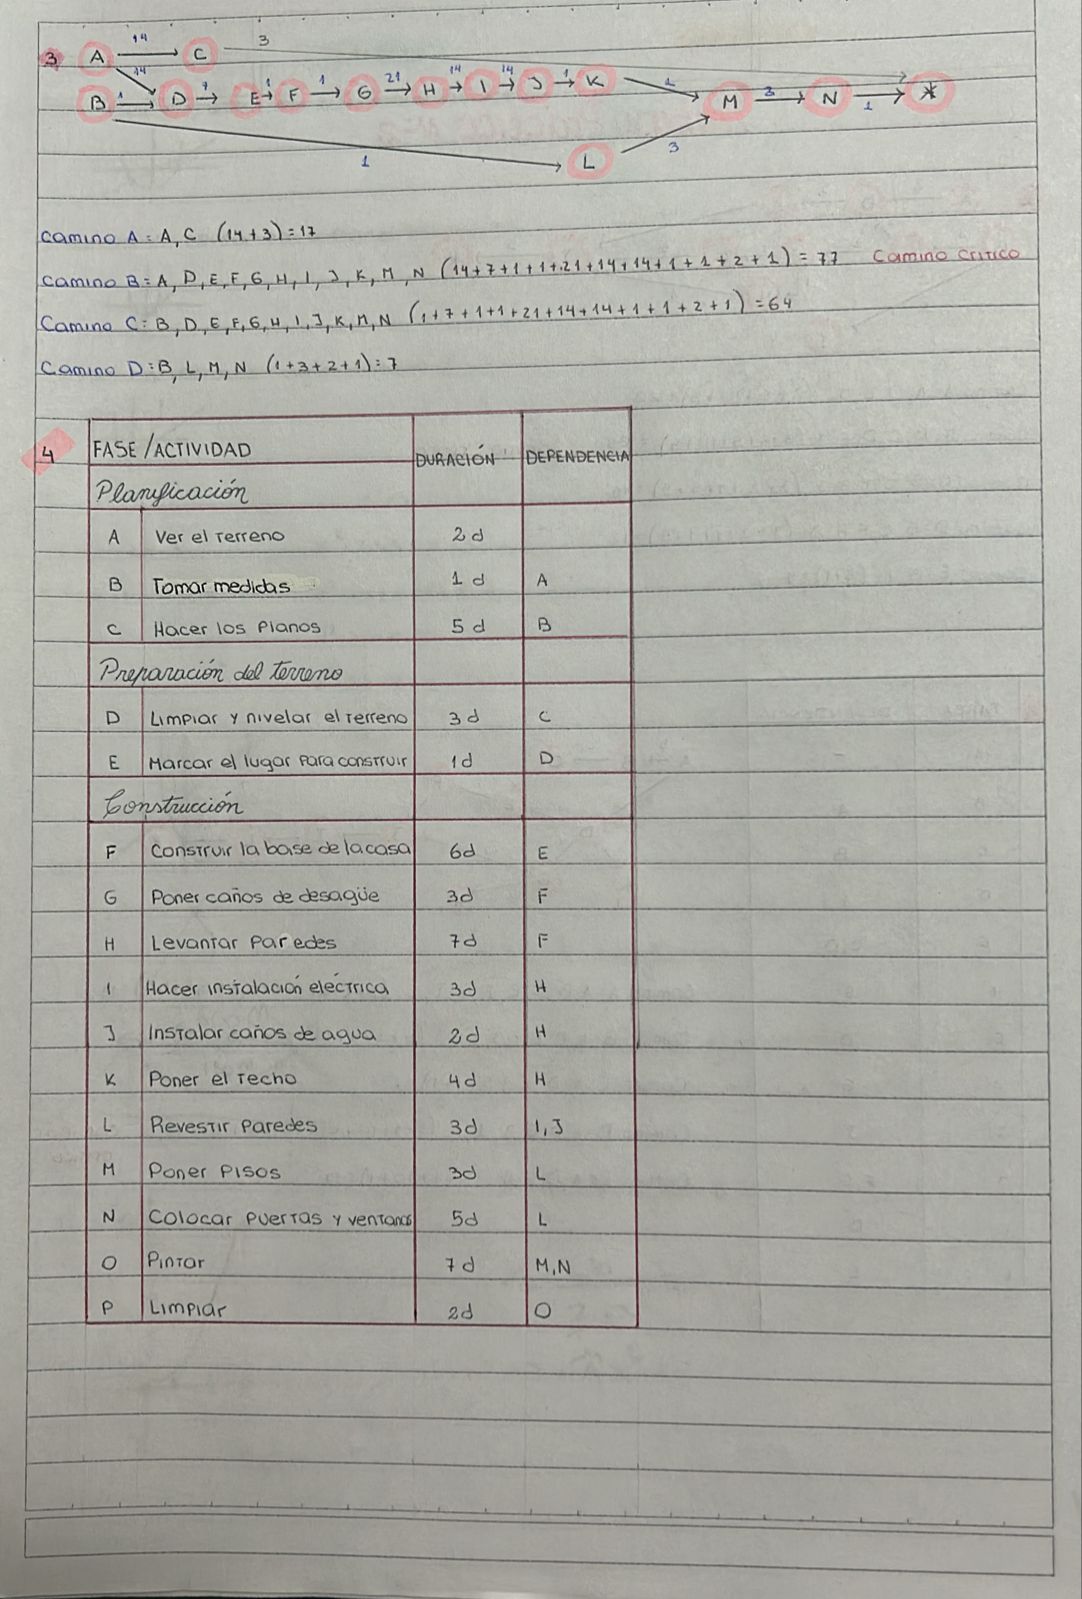 14 3
3 A → C
14
B 1 → D 7 → E 1 → F 1 → G 21 → H 14 → I 14 → J 1 → K 1 → M 3 → N 1 → *
1 L 3
Camino A: A, C (14+3)=17
Camino B= A, D, E, F, G, H, I, J, K, M, N (14+7+1+1+21+14+14+1+1+2+1)=77 Camino critico
Camino C: B, D, E, F, G, H, I, J, K, M, N (1+7+1+1+21+14+14+1+1+2+1)=64
Camino D: B, L, M, N (1+3+2+1)=7
4 FASE / ACTIVIDAD DURACIÓN DEPENDENCIA
Planificación
A Ver el terreno 2d
B Tomar medidas 1d A
C Hacer los planos 5d B
Preparación del terreno
D Limpiar y nivelar el terreno 3d C
E Marcar el lugar para construir 1d D
Construcción
F Construir la base de la casa 6d E
G Poner caños de desagüe 3d F
H Levantar paredes 7d F
I Hacer instalación eléctrica 3d H
J Instalar caños de agua 2d H
K Poner el techo 4d H
L Revestir paredes 3d I,J
M Poner pisos 3d L
N Colocar puertas y ventanas 5d L
O Pintar 7d M,N
P Limpiar 2d O